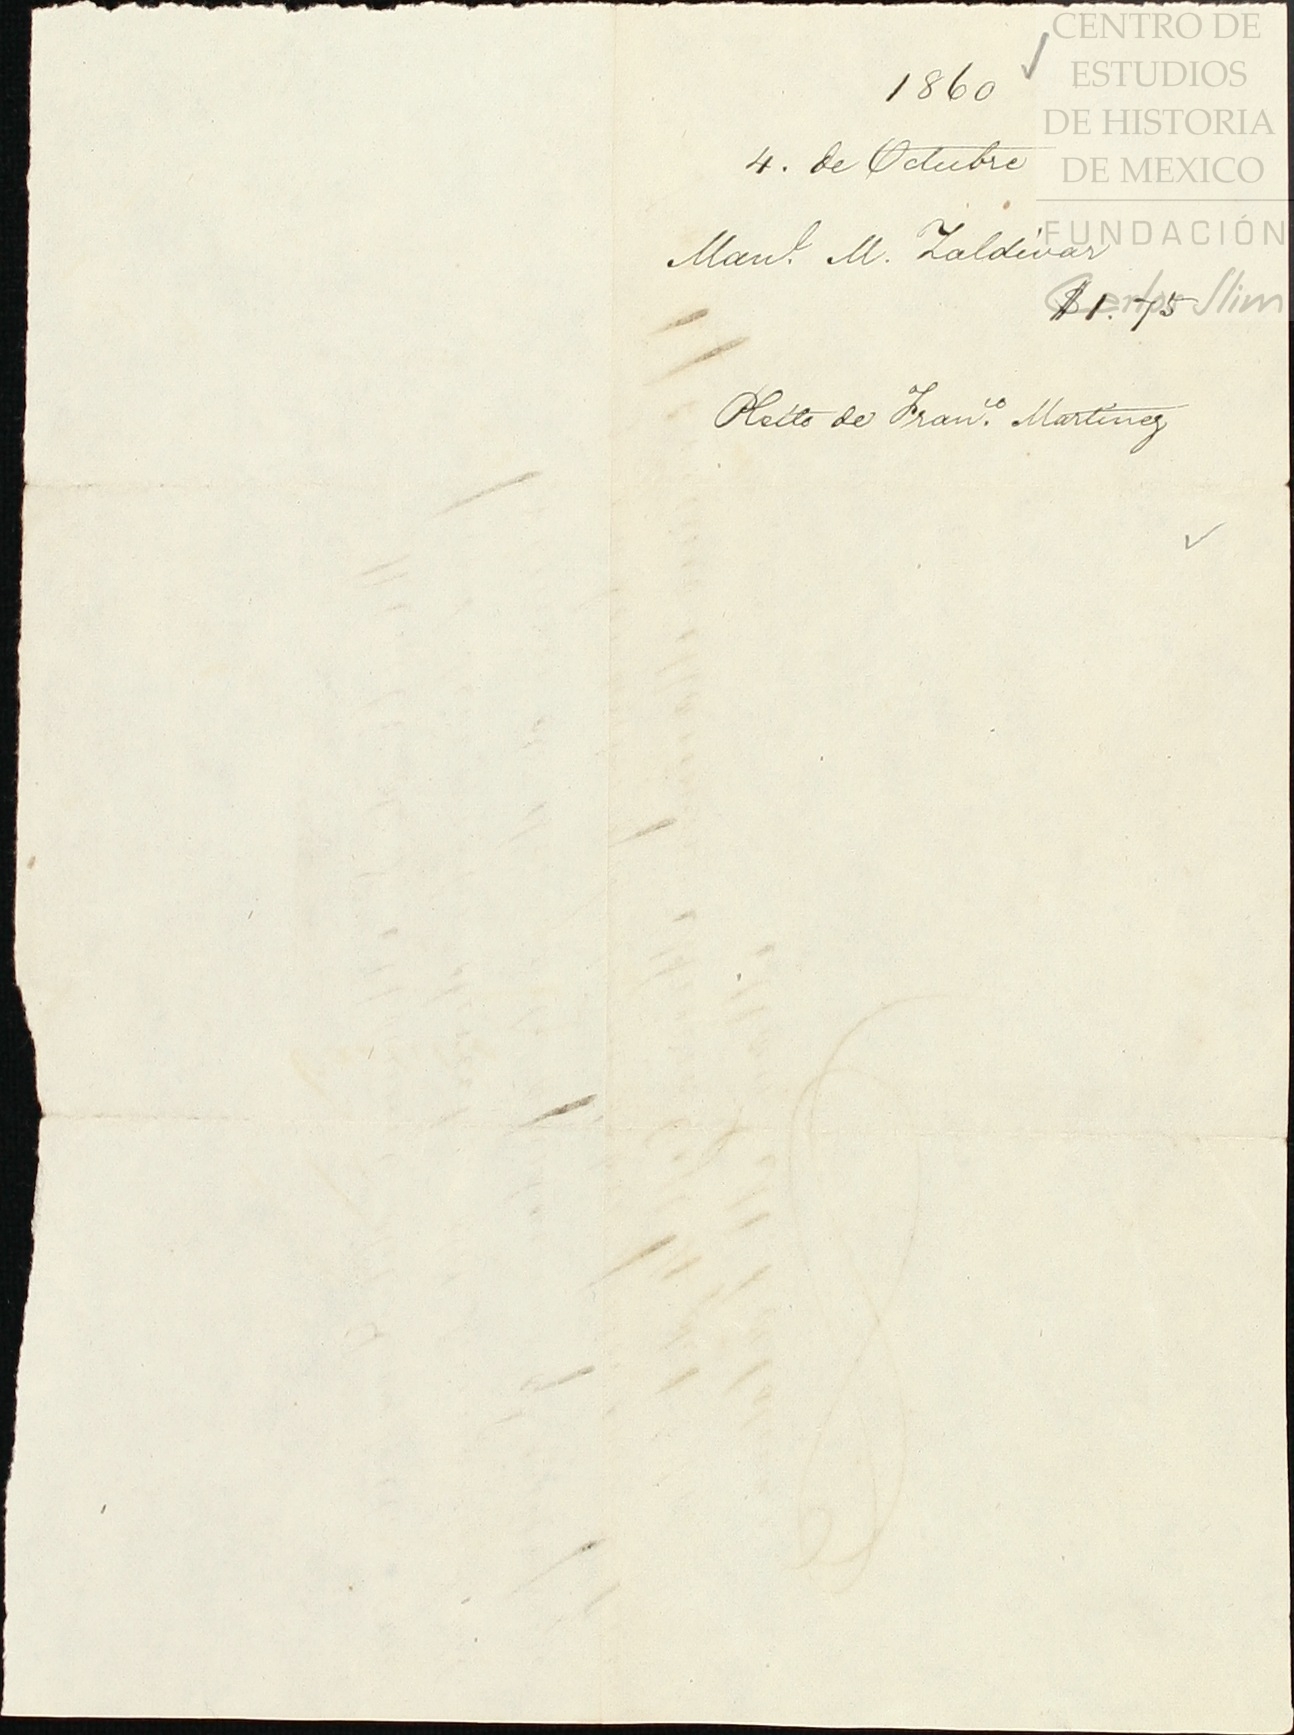 1860
4. de Octubre
Man.l M. Zaldivar
$1.75
Pleito de Fran.co Martinez
CENTRO DE
ESTUDIOS
DE HISTORIA
DE MEXICO
FUNDACIÓN
Carlos Slim